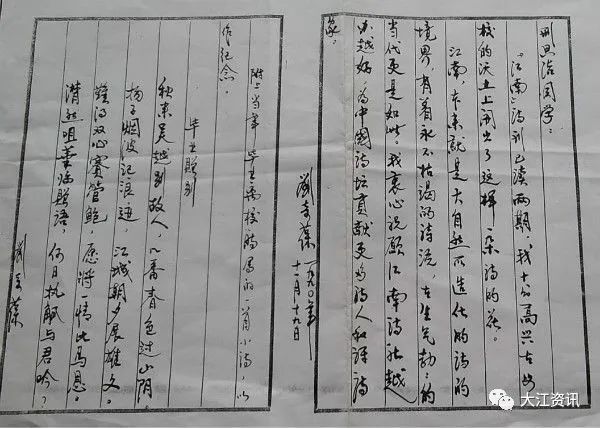 同学：
《江南》诗刊已读两期。我十分高兴在母
校的沃土上开出了这样一朵诗的花。
江南，本来就是大自然所造化的诗的
境界，有着永不枯竭的诗流，在生气勃勃的
当代更是如此。我衷心祝愿江南诗社越
办越好，为中国诗坛贡献更多诗人和
刘奇葆 一九九〇年
十一月十九日
附上当年毕业离校时写的一首小诗，以
作纪念。
毕业赠别
秋来吴越别故人，几番春色过山阴。
扬子烟波记浪迹，江城朝夕展雄文。
难得双心赛管鲍，愿将一情比马恩。
潸然咀 临赠语，何日执觞与君吟？
刘奇葆
大江资讯